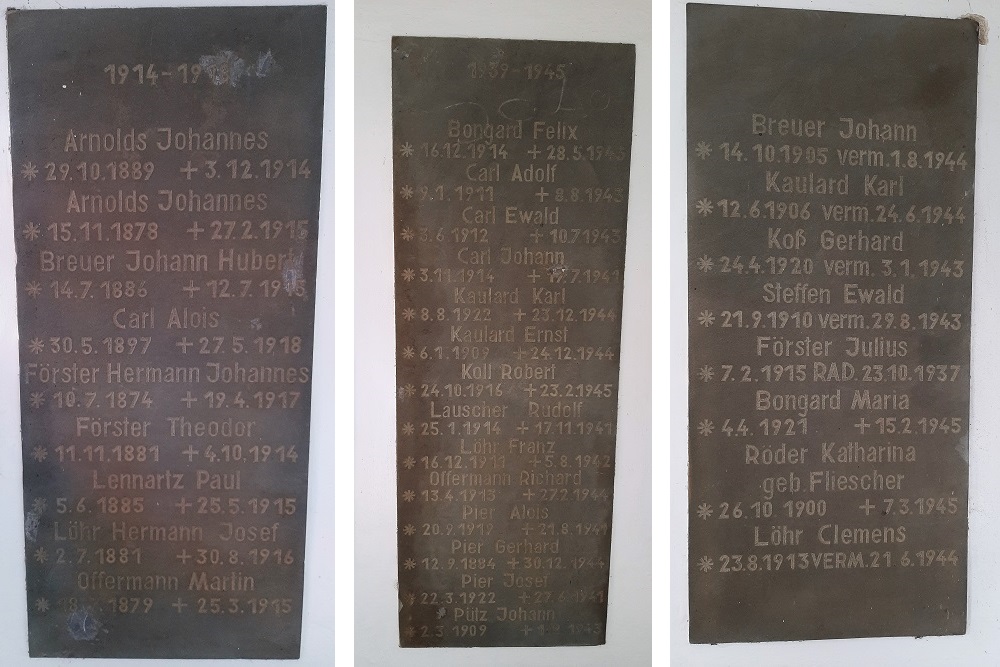 Arnolds Johannes
* 29.10.1889 + 3.12.1914
Arnolds Johannes
* 15.11.1878 + 27.2.1915
Breuer Johann Hubert
* 14.7.1886 + 12.7.1915
Carl Alois
* 30.5.1897 + 27.5.1918
Förster Hermann Johannes
* 10.7.1874 + 19.4.1917
Förster Theodor
* 11.11.1881 + 4.10.1914
Lennartz Paul
* 5.6.1885 + 25.5.1915
Löhr Hermann Josef
* 2.7.1881 + 30.8.1916
Offermann Martin
1879 + 25.3.1915
1939-1945
Bongard Felix
* 16.12.1914 + 28.5.1943
Carl Adolf
* 9.1.1911 + 8.8.1943
Carl Ewald
* 3.6.1912 + 10.7.1943
Carl Johann
* 3.11.1914
Kaulard Karl
* 8.8.1922 + 23.12.1944
Kaulard Ernst
* 6.1.1909 + 24.12.1944
Koll Robert
* 24.10.1916 + 23.2.1945
Lauscher Rudolf
* 25.1.1914 + 17.11.1941
Löhr Franz
* 16.12.1911 + 5.8.1942
Offermann Richard
* 13.4.1913 + 27.2.1944
Pier Alois
* 20.9.1919 + 21.8.1941
Pier Gerhard
* 12.9.1884 + 30.12.1944
Pier Josef
* 22.3.1922 + 27.6.1941
Pütz Johann
* 2.3.1909
Breuer Johann
* 14.10.1905 verm. 1.8.1944
Kaulard Karl
* 12.6.1906 verm. 24.6.1944
Koß Gerhard
* 24.4.1920 verm. 3.1.1943
Steffen Ewald
* 21.9.1910 verm. 29.8.1943
Förster Julius
* 7.2.1915 RAD. 23.10.1937
Bongard Maria
* 4.4.1921 + 15.2.1945
Röder Katharina
geb. Fliescher
* 26.10 1900 + 7.3.1945
Löhr Clemens
* 23.8.1913 VERM. 21 6.1944